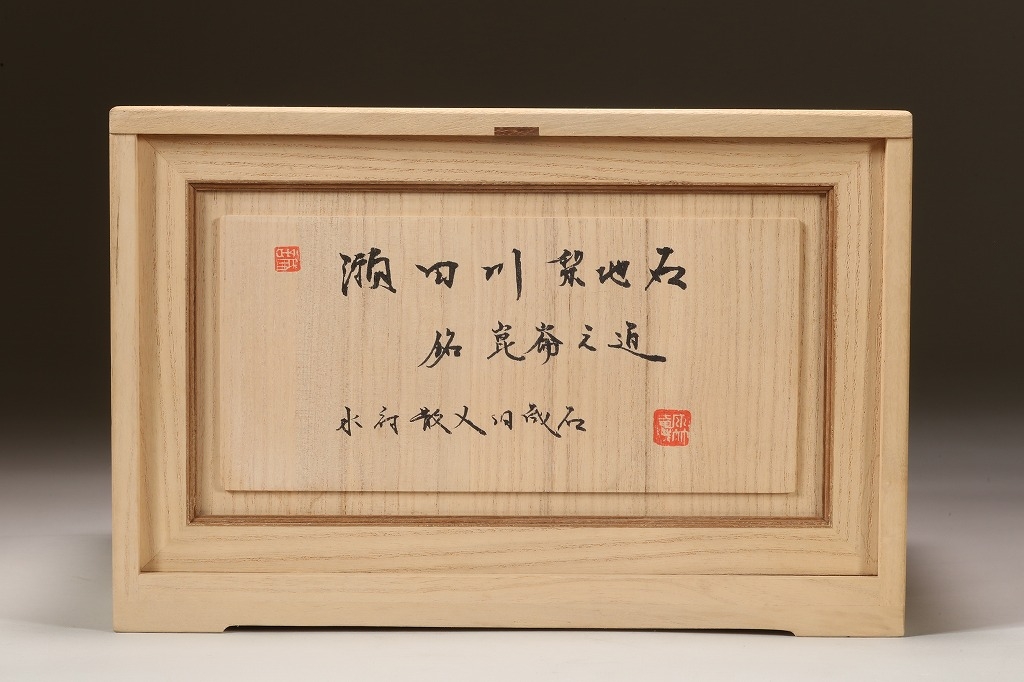 瀬田川梨地石
銘 崑崙之道
水府散人旧蔵石